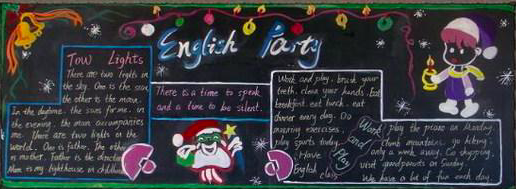 English Party
Tow Lights
There are two lights in
the sky. One is the sun,
the other is the moon.
In the daytime, the suns for me, in
the evening, the moon accompanies
me. There are two lights in the
world. One is father. The other
is mother. Father is the
Mom is my lighthouse in childhood
There is a time to speak
and a time to be silent.
Work and play, brush your
teeth, clean your hands. Eat
breakfast, eat lunch, eat
dinner every day. Do
morning exercises,
play sports today.
Have
English class
Work
And
Play
play the piano on Monday.
Climb mountains, go hiking,
only a week away. Go shopping,
visit grandparents on Sunday.
We have a lot of fun each day.